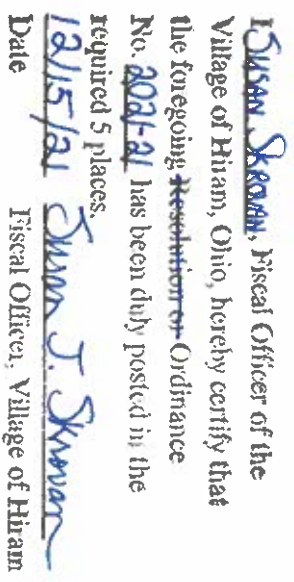 I SUSAN SKROVAN, Fiscal Officer of the
Village of Hiram, Ohio, hereby certify that
the foregoing Resolution or Ordinance
No. 2021-21 has been duly posted in the
required 5 places.
12/15/21 Susan J. Skrovan
Date Fiscal Officer, Village of Hiram